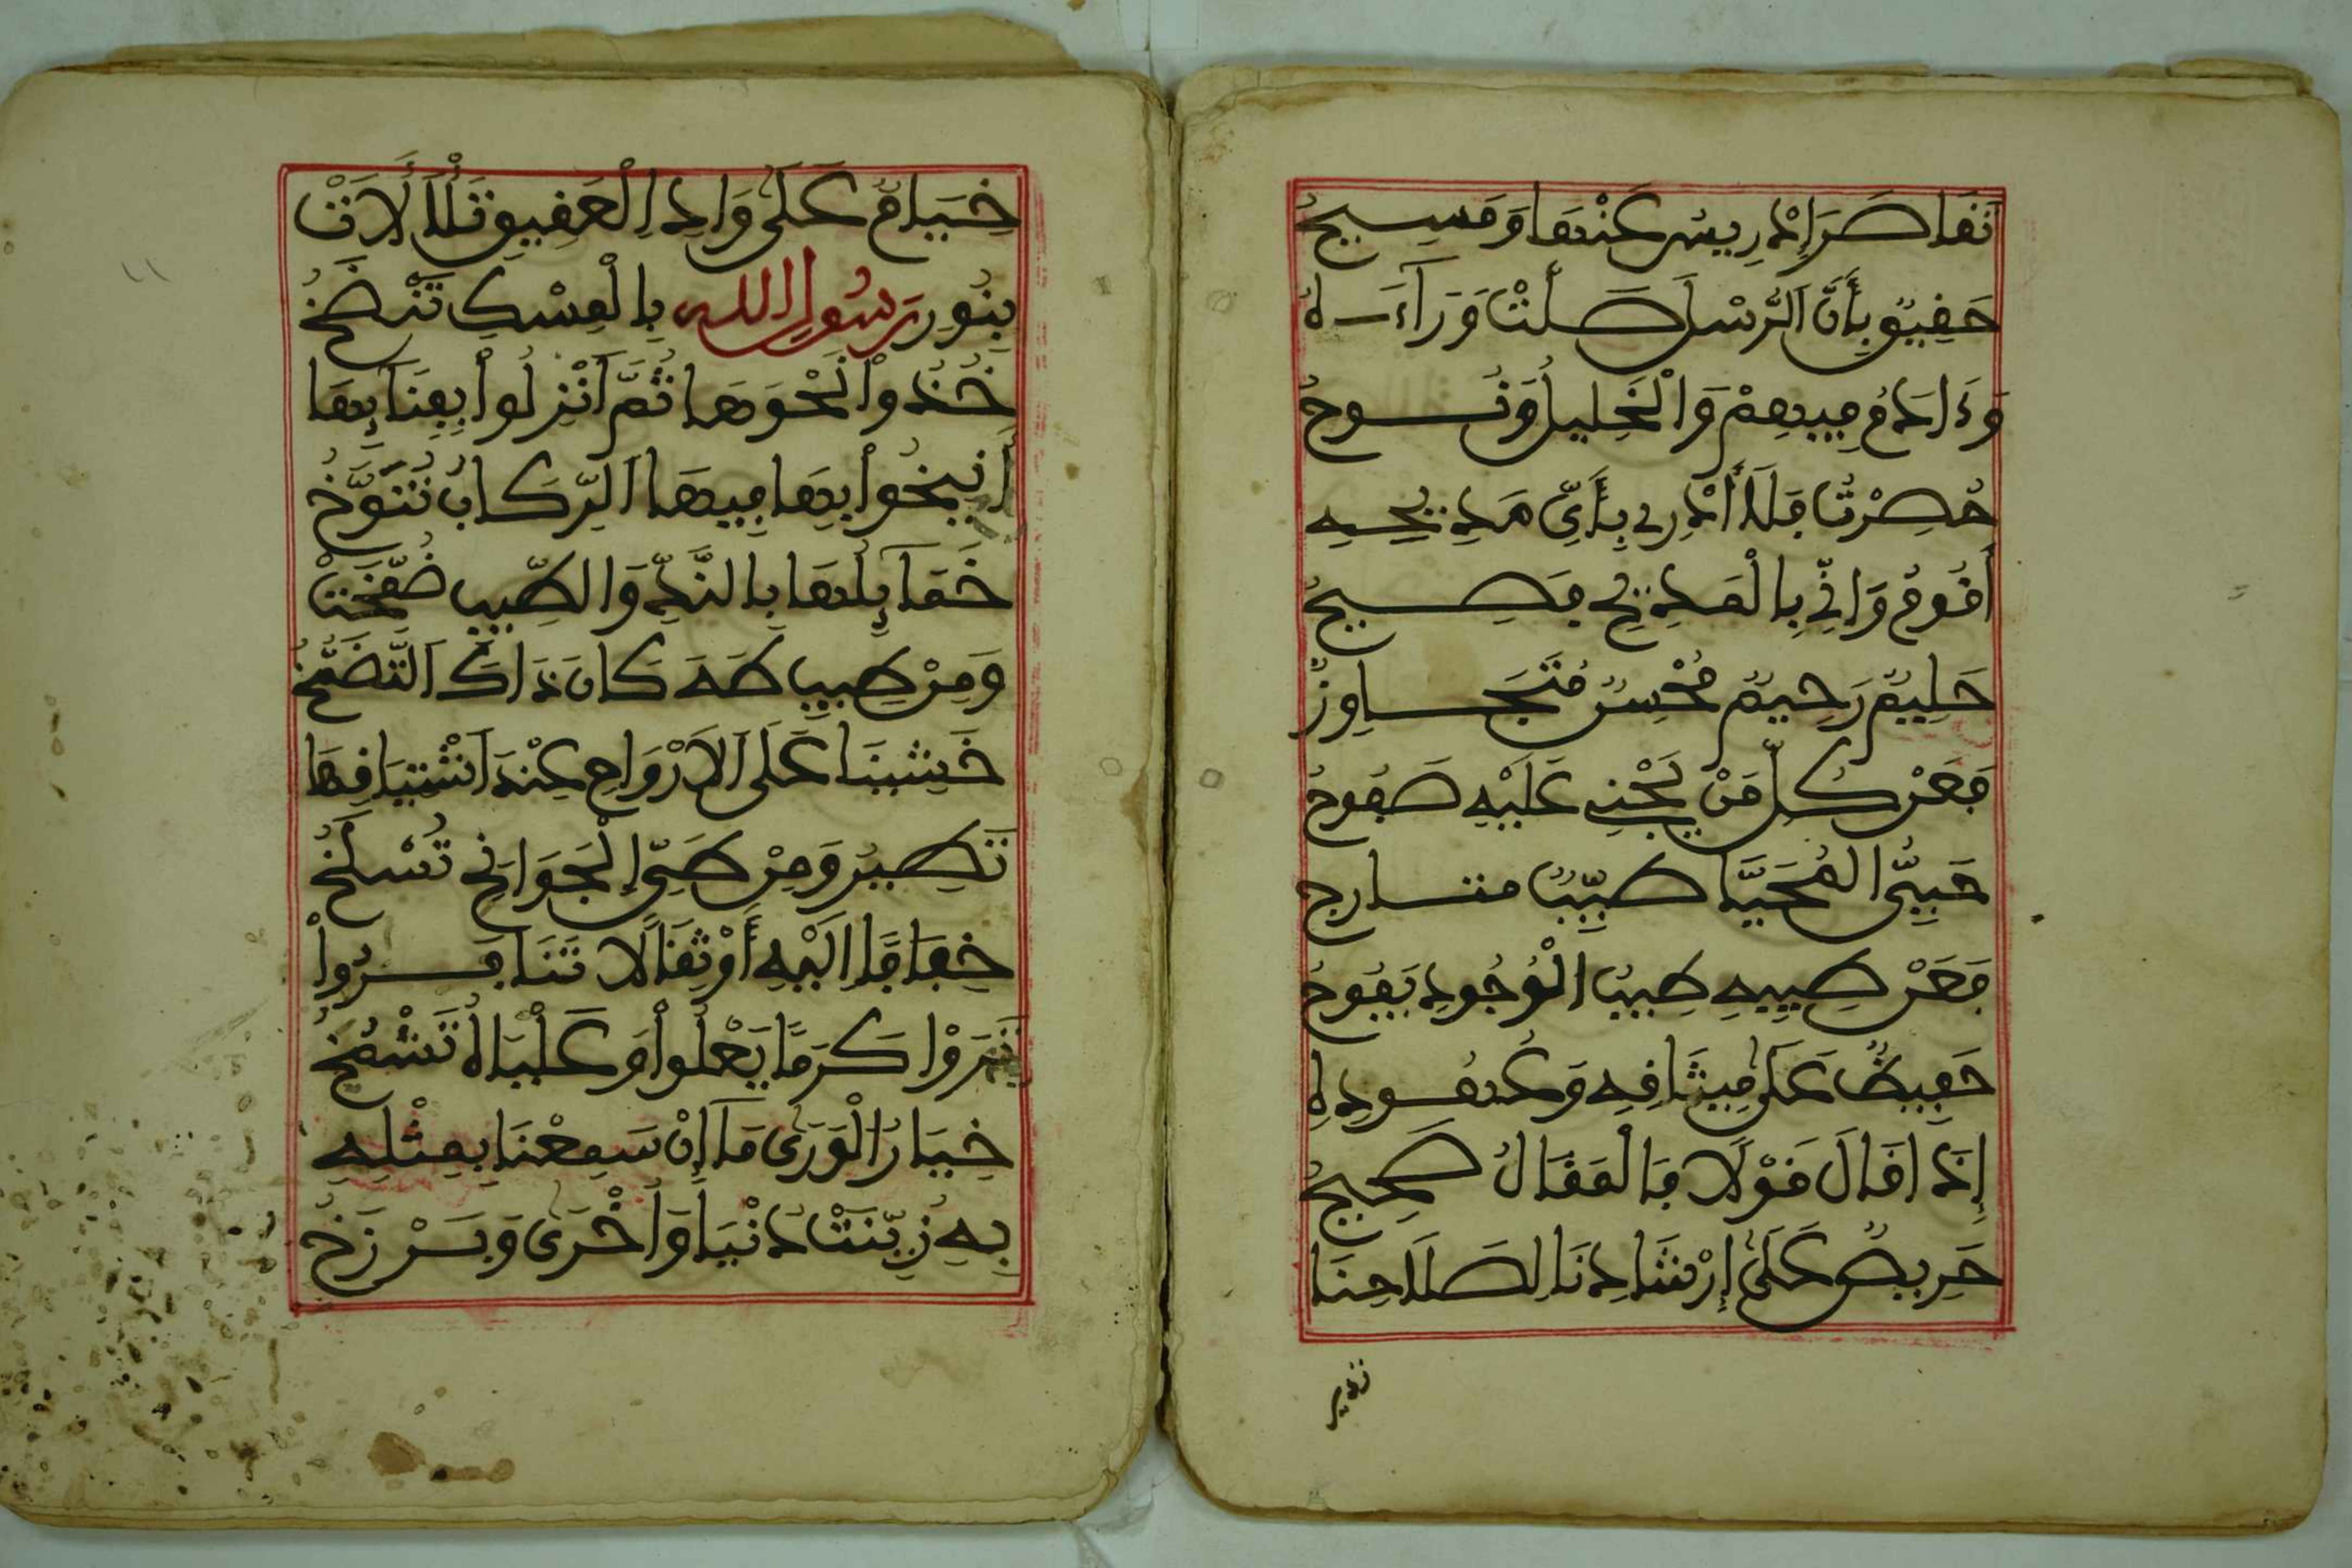 تَقَاصَرَ إِدْرِيسٌ عَنْهَا وَمَسِيحُ
حَفِيقٌ بِأَنَّ الرُّسْلَ صَلَّتْ وَرَآءَهُ
وَءَادَمُ فِيهِمْ وَالْخَلِيلُ وَنُوحُ
حُصِرْتُ فَلَا أَدْرِي بِأَيِّ مَدِيحِهِ
أَقُومُ وَإِنِّي بِالْمَدِيحِ فَصِيحُ
حَلِيمٌ رَحِيمٌ مُحْسِنٌ مُتَجَاوِزٌ
فَعَنْ كُلِّ مَنْ يَجْنِي عَلَيْهِ صَفُوحُ
حَيِيُّ الْمُحَيَّا طَيِّبٌ متارج
فَعَنْ طِيبِهِ طِيبُ الْوُجُودِ يَفُوحُ
حَفِيظٌ عَلَى مِيثَاقِهِ وَعُهُودِهِ
إِذَا قَالَ قَوْلًا فَالْمَقَالُ صَحِيحُ
حَرِيصٌ عَلَى إِرْشَادِنَا لِصَلَاحِنَا
خِيَامٌ عَلَى وَادِ الْعَقِيقِ تَلَأْلَأَتْ
بِنُورِ رَسُولِ اللهِ بِالْمِسْكِ تَنْضَخُ
خُذُواْ نَحْوَهَا ثُمَّ انْزِلُواْ بِفِنَايِهَا
أَنِيخُواْ بِهَا فِيهَا الرِّكَابُ تُنَوَّخُ
خَمَايِلُهَا بِالنَّدِّ وَالطِّيبِ ضُمِّخَتْ
وَمِنْ طِيبِ طَهَ كَانَ ذَاكَ التَّضَمُّخُ
خَشِينَا عَلَى الْأَرْوَاحِ عِنْدَ اشْتِيَاقِهَا
تَطِيرُ وَمِنْ طَيِّ الْجَوَانِحِ تُسْلَخُ
خِفَافًا إِلَيْهِ أَوْ ثِقَالًا تَنَافَرُواْ
تَرَوْا كَرَمًا يَعْلُواْ وَعَلْيَاهُ تَشْمُخُ
خِيَارُ الْوَرَى مَا إِنْ سَمِعْنَا بِمِثْلِهِ
بِهِ زِيِّنَتْ دُنْيَا وَأُخْرَى وَبَرْزَخُ